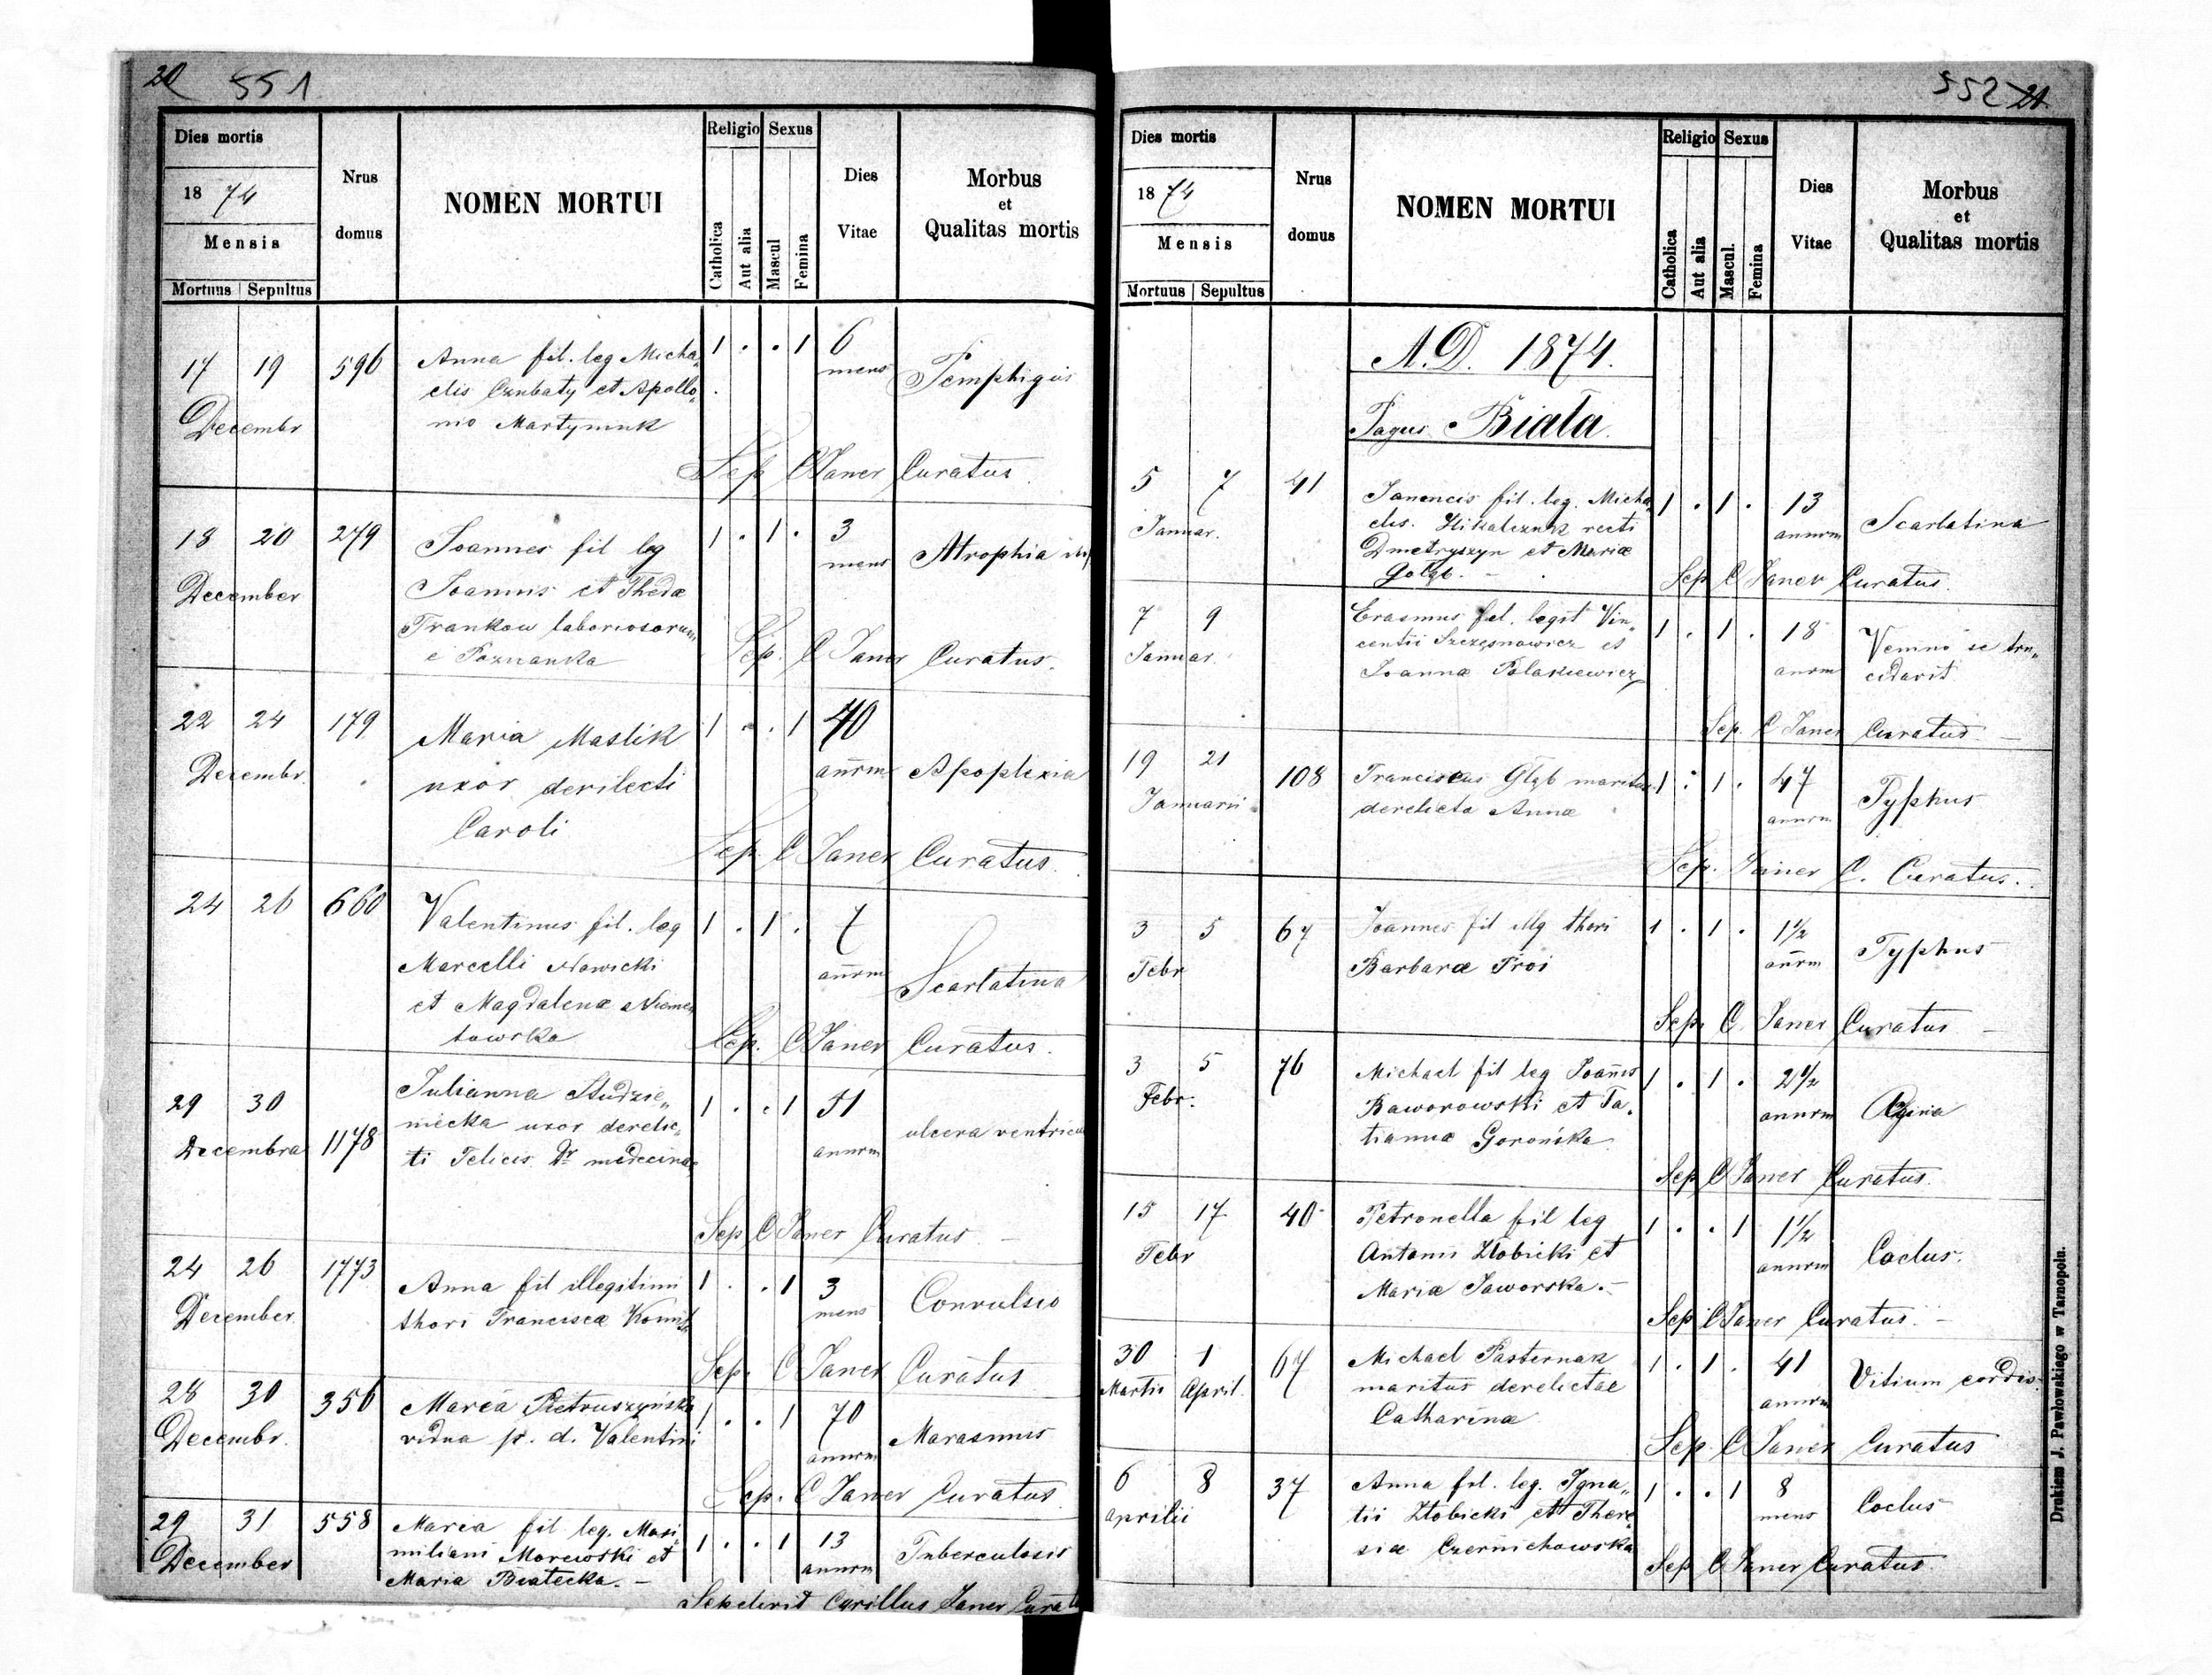 20 551
Dies mortis
1874
Mensis
Mortuus Sepultus
Nrus domus
NOMEN MORTUI
Religio Sexus
Catholica Aut alia Mascul Femina
Dies Vitae
Morbus
et
Qualitas mortis
17 19 596 Anna fil. leg Micha„ 1 . . 1 6
elis et Apollo„ mens
Decembr Martyniuk
Sep C Janer Curatus
18 20 279 Joannes fil leg 1 . 1 . 3
December Joannis et mens Atrophia inf
Trankow laboriosorum
e Poznanka
Sep. C Janer Curatus.
22 24 179 Maria Maslik 1 . . 1 40
Decembr. uxor derilecti annrm Apoplexia
Caroli
Sep. C Janer Curatus.
24 26 660 Valentinus fil. leg 1 . 1 . 7
Marcelli Nawicki annrm Scarlatina
et Magdalena Niemen„
towska
Sep. C Janer Curatus.
29 30 Julianna Studzie„ 1 . . 1 51
Decembra 1178 niecka uxor derelic„ annrm ulcera ventricu
ti Felicis Dr medecina
Sep C Janer Curatus
24 26 1773 Anna fil illegitimi 1 . . 1 3
December thori Francisca mens Convulsio
Sep. C Janer Curatus
28 30 356 Maria Pietruszyńska 1 . . 1 70
Decembr. vidua p. d. Valentini annrm Marasmus
Sep. C Janer Curatus
29 31 558 Maria fil leg. Maxi„ 1 . . 1 13
December miliani Morewski et annrm Tuberculosis
Maria Białecka. –
Sepelivit Cyrillus Janer Curat
552 21
Dies mortis
1874
Mensis
Mortuus Sepultus
Nrus domus
NOMEN MORTUI
Religio Sexus
Catholica Aut alia Mascul. Femina
Dies Vitae
Morbus
et
Qualitas mortis
A.D. 1874.
Pagus Biała.
5 7 41 fil. leg. Micha„ 1 . 1 . 13
Januar. elis. recti annrm Scarlatina
Dmetryszyn et Mariæ
Gołąb. –
Sep C Janer Curatus.
7 9 Erasmus fil. legit Vin„ 1 . 1 . 18
Januar. centii Szczęsnowicz et annrm se tru„
Joannæ cidavit
Sep C Janer Curatus –
19 21 108 Franciscus Głąb maritus 1 . 1 . 47
Januarii derelicta Annæ annrm Typhus
Sep. Janer C. Curatus.
3 5 67 Joannes fil illg thori 1 . 1 . 1½
Febr Barbaræ Troi annrm Typhus
Sep. C Janer Curatus –
3 5 76 Michael fil leg Joannis 1 . 1 . 2½
Febr. Baworowski et Ta„ annrm
tianna Gorońska
Sep C Janer Curatus.
15 17 40 Petronella fil leg 1 . . 1 1½
Febr Antonii Złobicki et annrm Coclus.
Mariæ Jaworska. –
Sep C Janer Curatus. –
30 1 67 Michael Pasternak 1 . 1 . 41
Martii April. maritus derelictae annrm Vitium cordis.
Catharinæ
Sep C Janer Curatus
6 8 37 Anna fil. leg. Igna„ 1 . . 1 8
aprilii tii Złobicki et There„ mens Coclus
siæ Czernichowska
Sep C Janer Curatus
Drukiem J. Pawłowskiego w Tarnopolu.